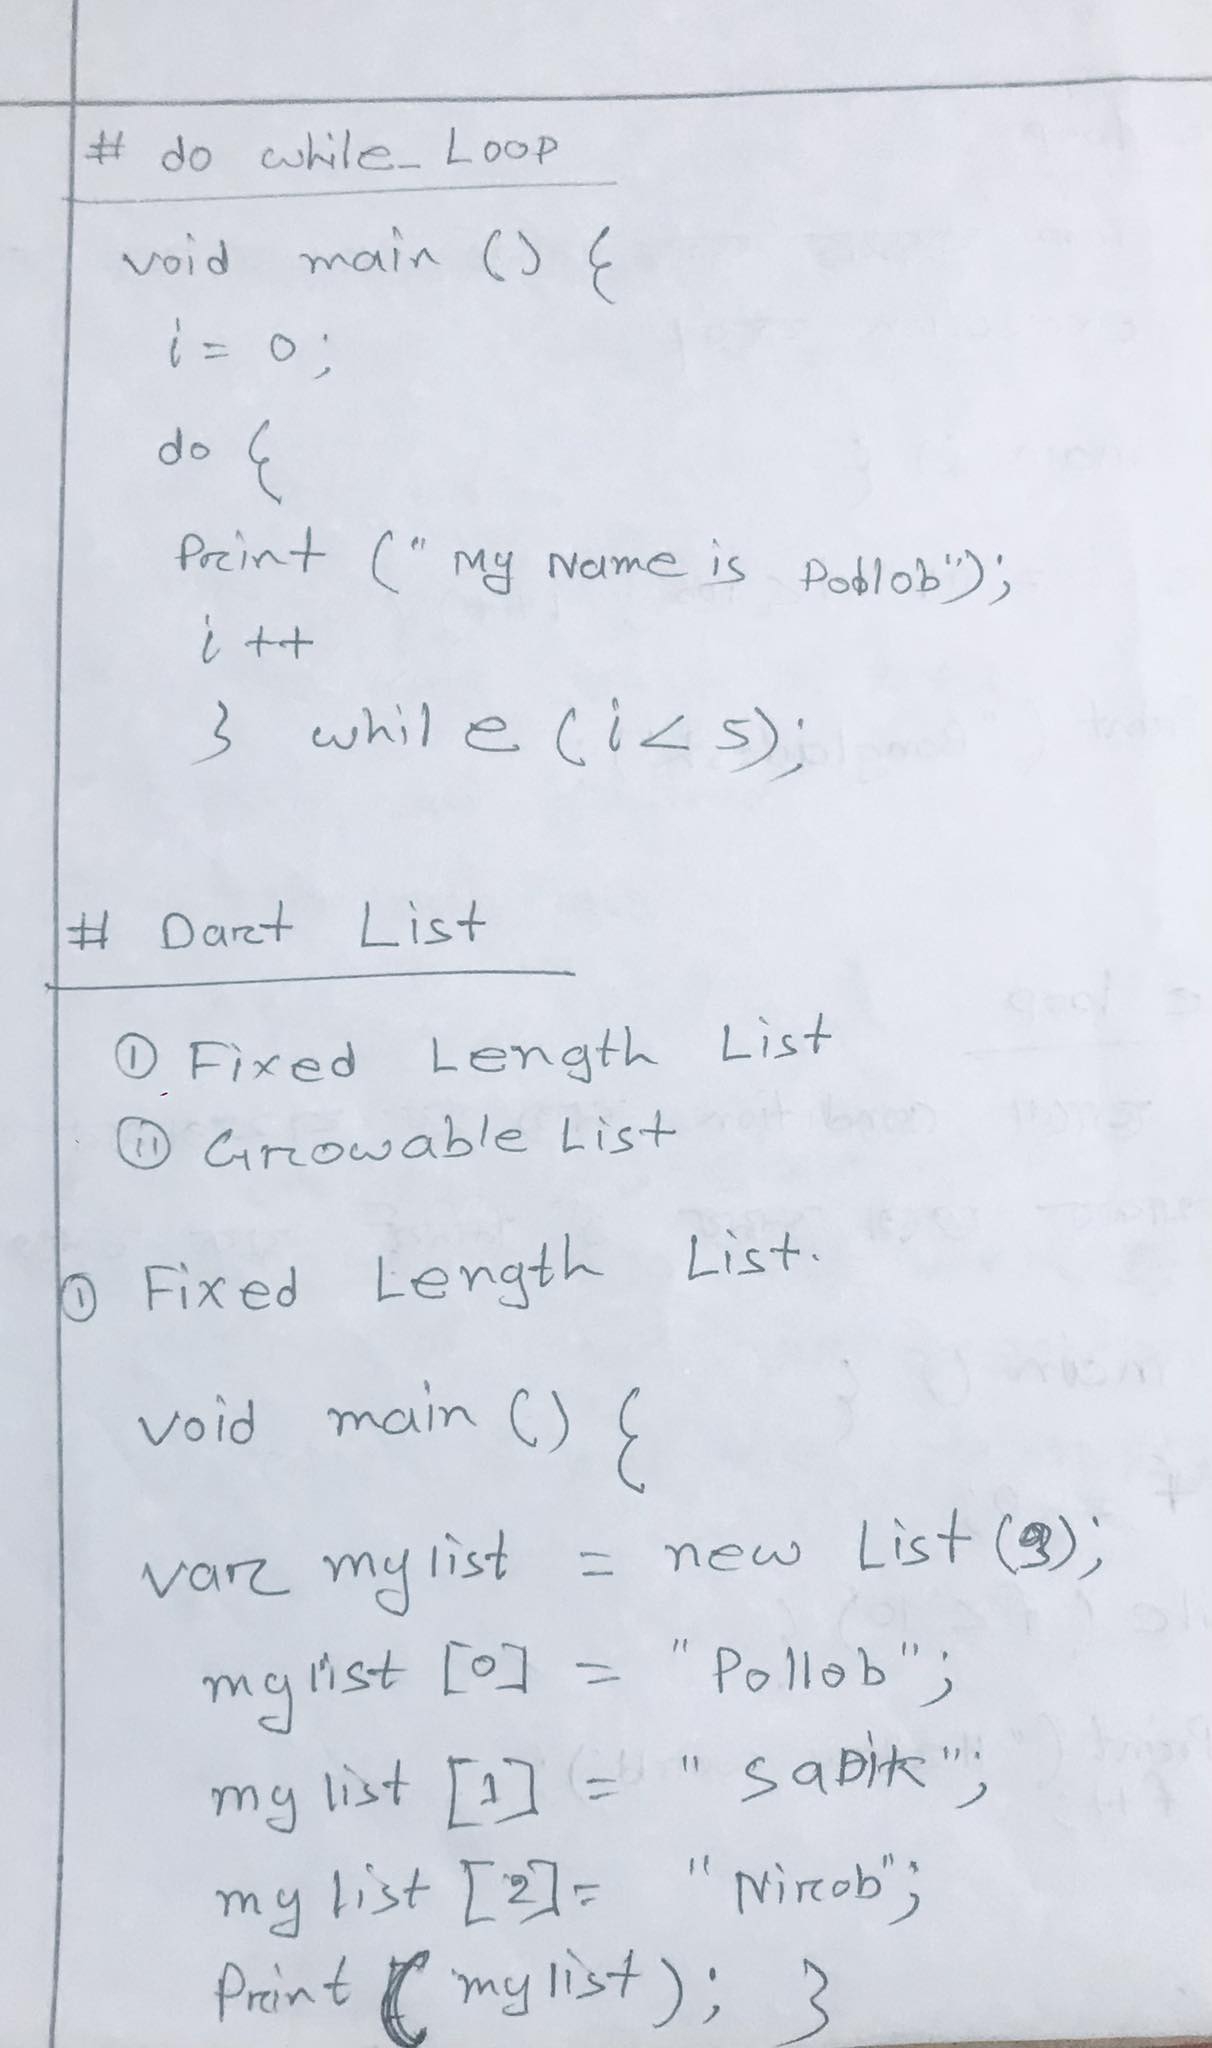 # do while_ Loop
void main () {
i = 0;
do {
Print (" My Name is Pollob");
i ++
} while (i < 5);
# Dart List
① Fixed Length List
② Growable List
① Fixed Length List.
void main () {
var mylist = new List (3);
mylist [0] = "Pollob";
my list [1] = " SaDik";
my list [2] = "Nirob";
Print ( mylist ); }